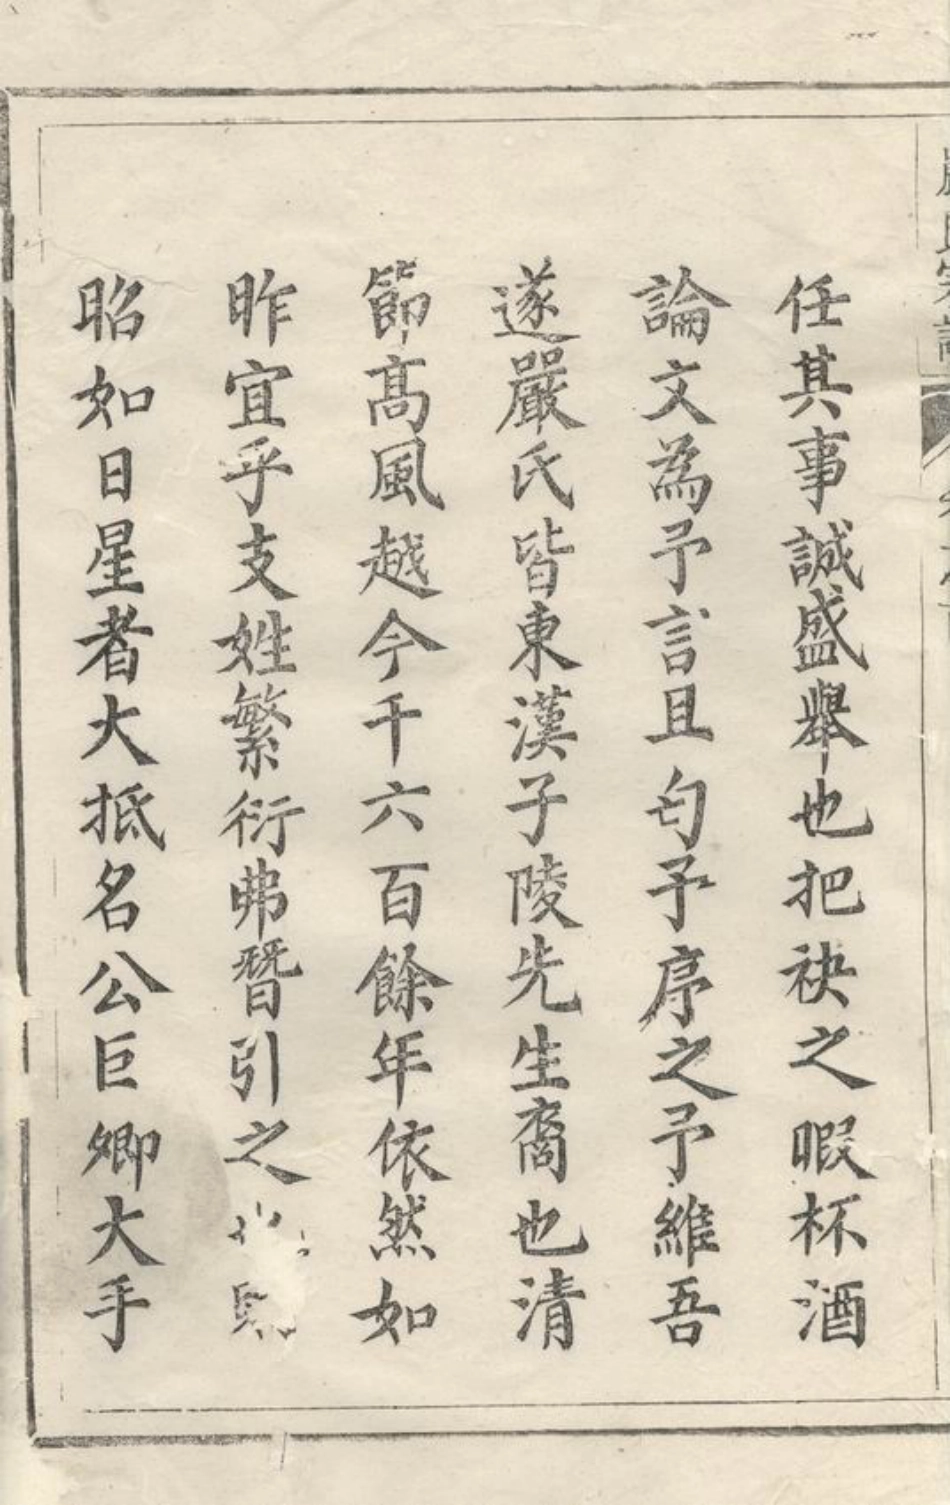 任其事誠盛舉也把袂之暇杯酒
論文為予言且匄予序之予維吾
遂嚴氏皆東漢子陵先生裔也清
節高風越今千六百餘年依然如
昨宜乎支姓繁衍弗替引之
昭如日星者大抵名公巨卿大手